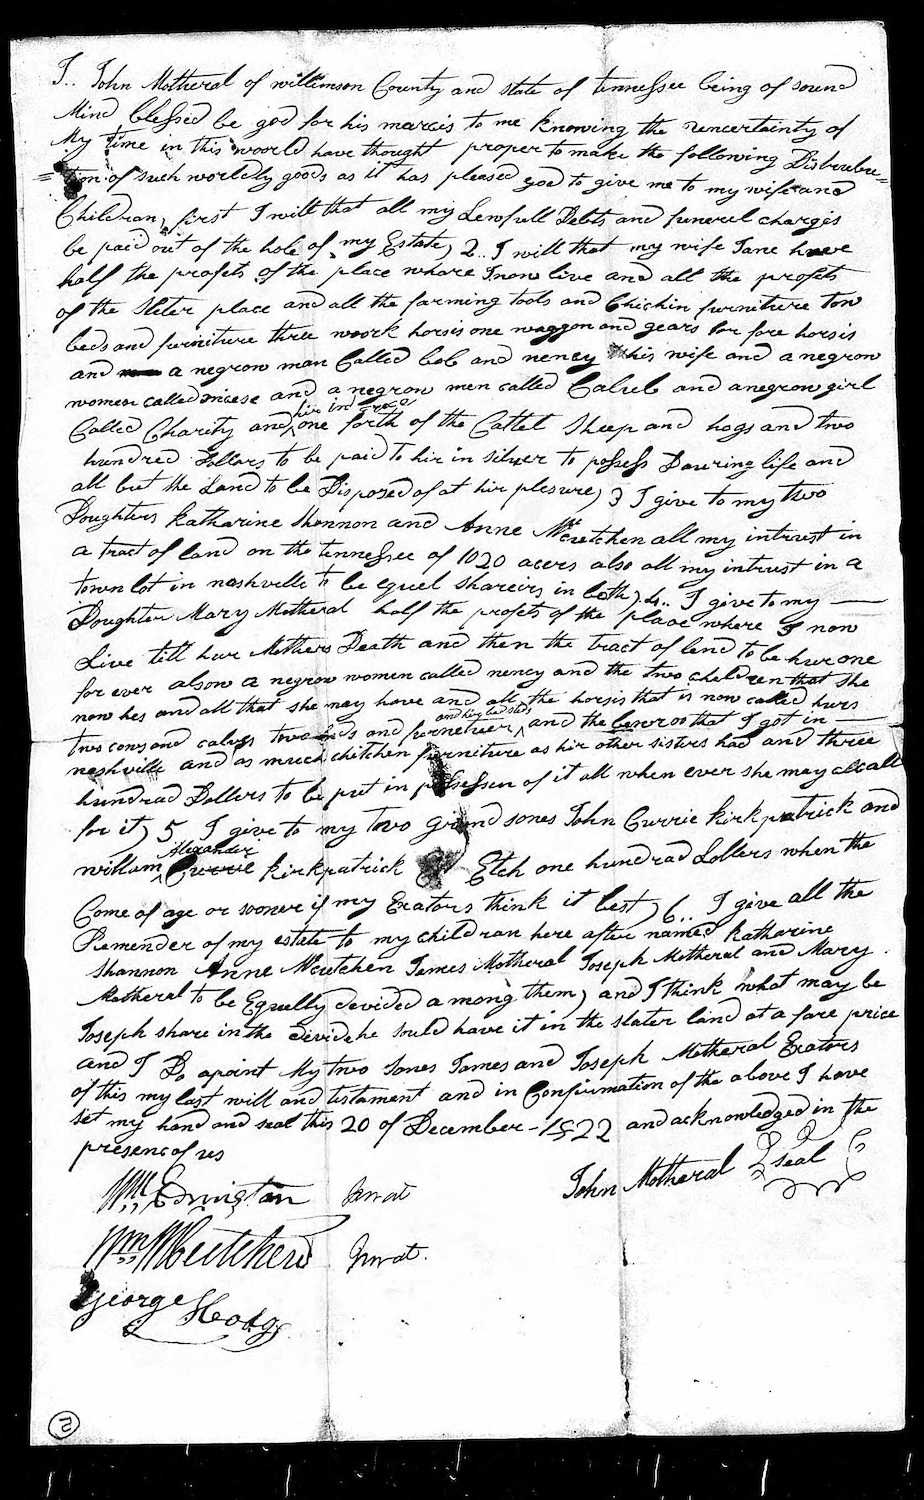 I.. John Motheral of williamson County and state of tennessee being of sound
Mind blessed be god for his marcis to me knowing the uncertainty of
My time in this world have thought proper to make the following Distrubu=
=tion of such worldly goods as it has pleased god to give me to my wife and
Children, first I will that all my Lewfull Debts and funerel charges
be paid out of the hole of my Estate) 2.. I will that my wife Jane have
half the profets of the place whare I now live and all the profets
of the slater place and all the farming tools and Chichin furniture tow
beds and furniture three work horsis one waggon and gears for fore horsis
and a negrow man Called bob and nency his wife and a negrow
women called and a negrow men called Caleb and a negrow girl
Called Charity and one forth of the Cattel Sheep and hogs and two
hundred Dollars to be paid to hir in silver to possess Dauring life and
all but the Land to be Disposed of at hir plesure) 3 I give to my two
Doughters Katharine Shannon and Anne McCutchen all my intrust in
a tract of land on the tennessee of 1020 acers also all my intrust in a
town lot in nashville to be equel shareirs in both) 4.. I give to my —
Doughter Mary Motheral half the profets of the place where I now
Live till hur Mothers Death and then the tract of lend to be hur one
for ever alsow a negrow women called nency and the two children that she
now hes and all that she may have and all the horsis that is now called hurs
two cows and calvs tow beds and furnetuer and hig bedsteds and the that I got in —
nashville and as much chitchen furniture as hir other sisters had and three
hundrad Dollers to be put in possessen of it all when ever she may call
for it) 5 I give to my two grand sones John Currie Kirkpatrick and
william Alexander Currie Kirkpatrick Etch one hundrad Dollers when the
Come of age or sooner if my Exators think it best) 6.. I give all the
Remender of my estate to my children here after named Katharine
Shannon Anne McCutchen James Motheral Joseph Motheral and Mary
Motheral to be Equelly devided among them) and I think what may be
Joseph share in the devide he sould have it in the slater land at a fare price
and I Do apoint My two Sones James and Joseph Motheral Exators
of this my last will and testament and in Confirmation of the above I have
set my hand and seal this 20 of December - 1822 and acknowledged in the
presenc of us
John Motheral seal
Wm Edmington Jurat
Wm McCutchen Jurat.
George Hodg
2